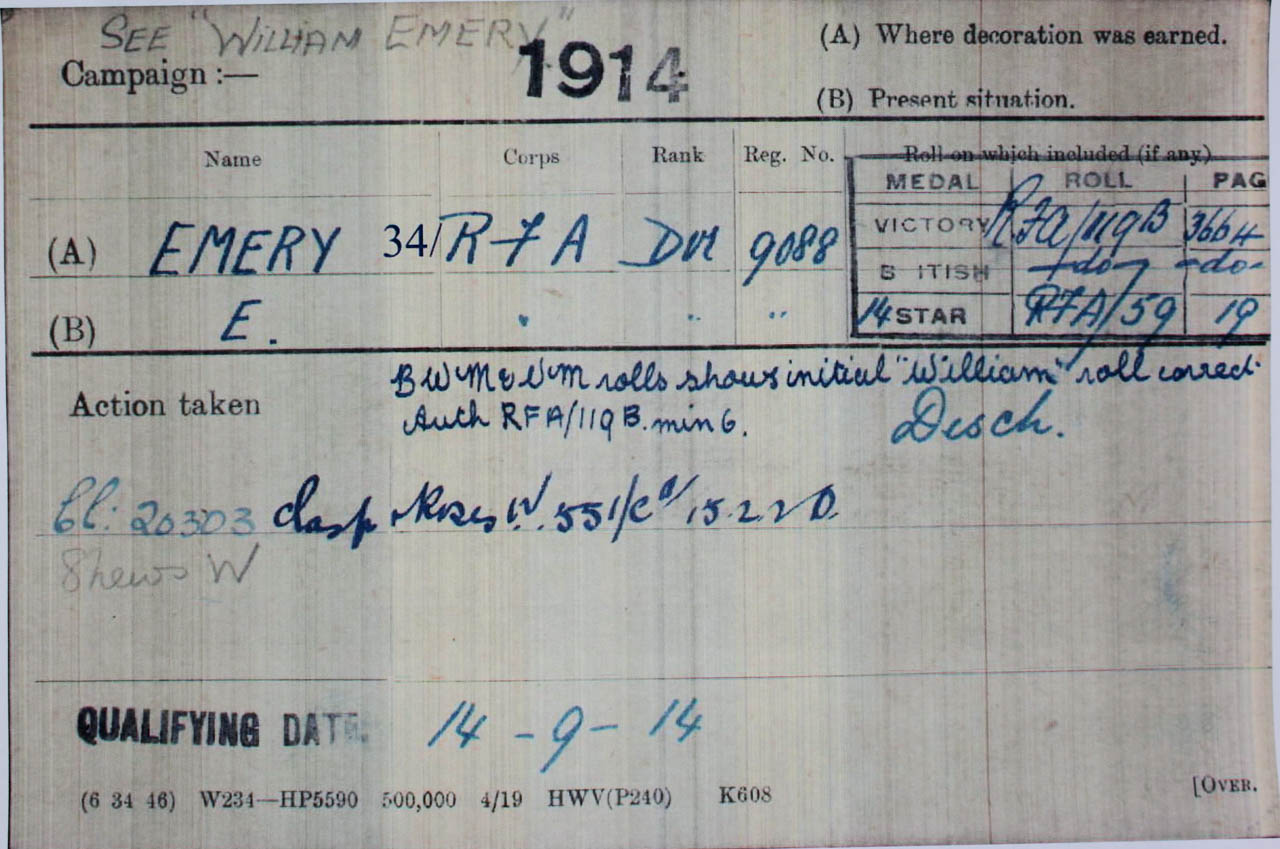 SEE "WILLIAM EMERY"
Campaign :— 1914
(A) Where decoration was earned.
(B) Present situation.
Name Corps Rank Reg. No. Roll on which included (if any)
MEDAL ROLL PAG
(A) EMERY 34/RFA Dvr 9088 VICTORY RFA/119B 3664
B ITISH -do- -do-
(B) E. " " " 14 STAR RFA/59 19
Action taken
BWM & VM rolls shows initial "William" roll correct.
Auth RFA/119B. min 6. Desch.
Cl: 20303 Clasp Roses W. 551/ 15.2.2
Shews W
QUALIFYING DATE. 14 - 9 - 14
(6 34 46) W234—HP5590 500,000 4/19 HWV(P240) K608 [OVER.